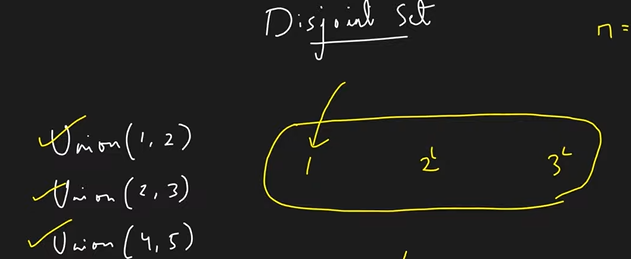 Disjoint Set
n =
Union(1, 2)
1 2 3
Union(2, 3)
Union(4, 5)